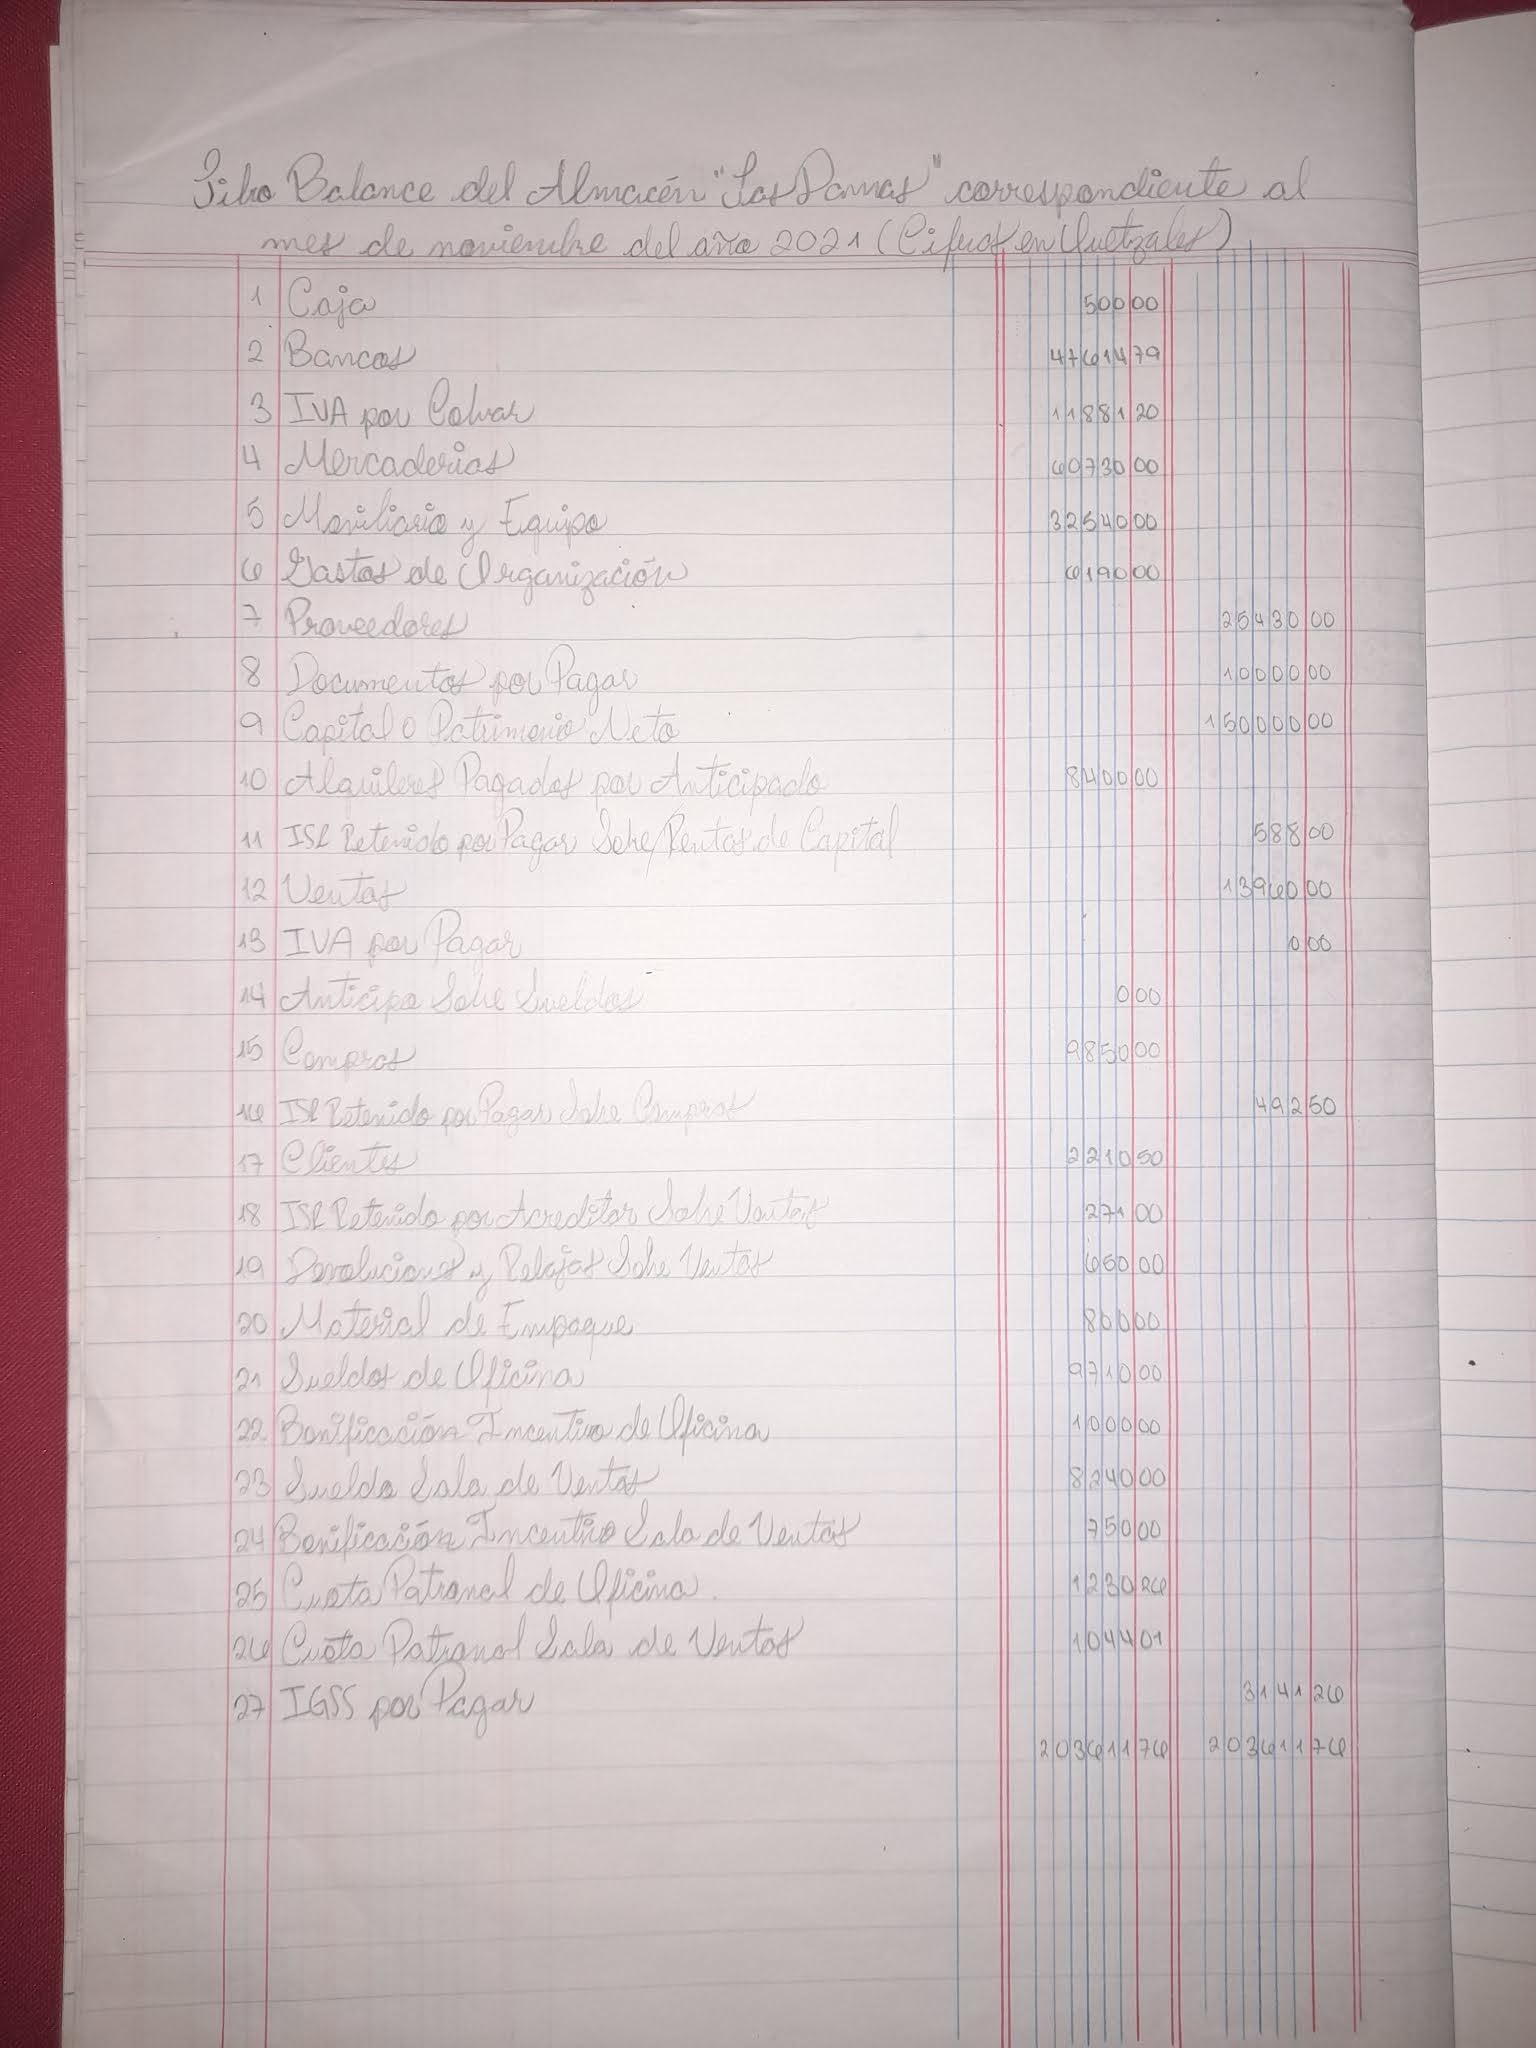 Libro Balance del Almacén "Las Damas" correspondiente al
mes de noviembre del año 2021 (Cifras en Quetzales)
1 Caja 500 00
2 Bancos 47614 79
3 IVA por Cobrar 11881 20
4 Mercaderias 60730 00
5 Mobiliario y Equipo 32540 00
6 Gastos de Organización 6190 00
7 Proveedores 25430 00
8 Documentos por Pagar 10000 00
9 Capital o Patrimonio Neto 150000 00
10 Alquileres Pagados por Anticipado 8400 00
11 ISR Retenido por Pagar Sobre Rentas de Capital 588 00
12 Ventas 13960 00
13 IVA por Pagar 0 00
14 Anticipo Sobre Sueldos 0 00
15 Compras 9850 00
16 ISR Retenido por Pagar Sobre Compras 492 50
17 Clientes 2210 50
18 ISR Retenido por Acreditar Sobre Ventas 271 00
19 Devoluciones y Rebajas Sobre Ventas 650 00
20 Material de Empaque 800 00
21 Sueldos de Oficina 9710 00
22 Bonificación Incentivo de Oficina 1000 00
23 Sueldo Sala de Ventas 8240 00
24 Bonificación Incentivo Sala de Ventas 750 00
25 Cuota Patronal de Oficina. 1230 26
26 Cuota Patronal Sala de Ventas 1044 01
27 IGSS por Pagar 3141 26
203611 76 203611 76